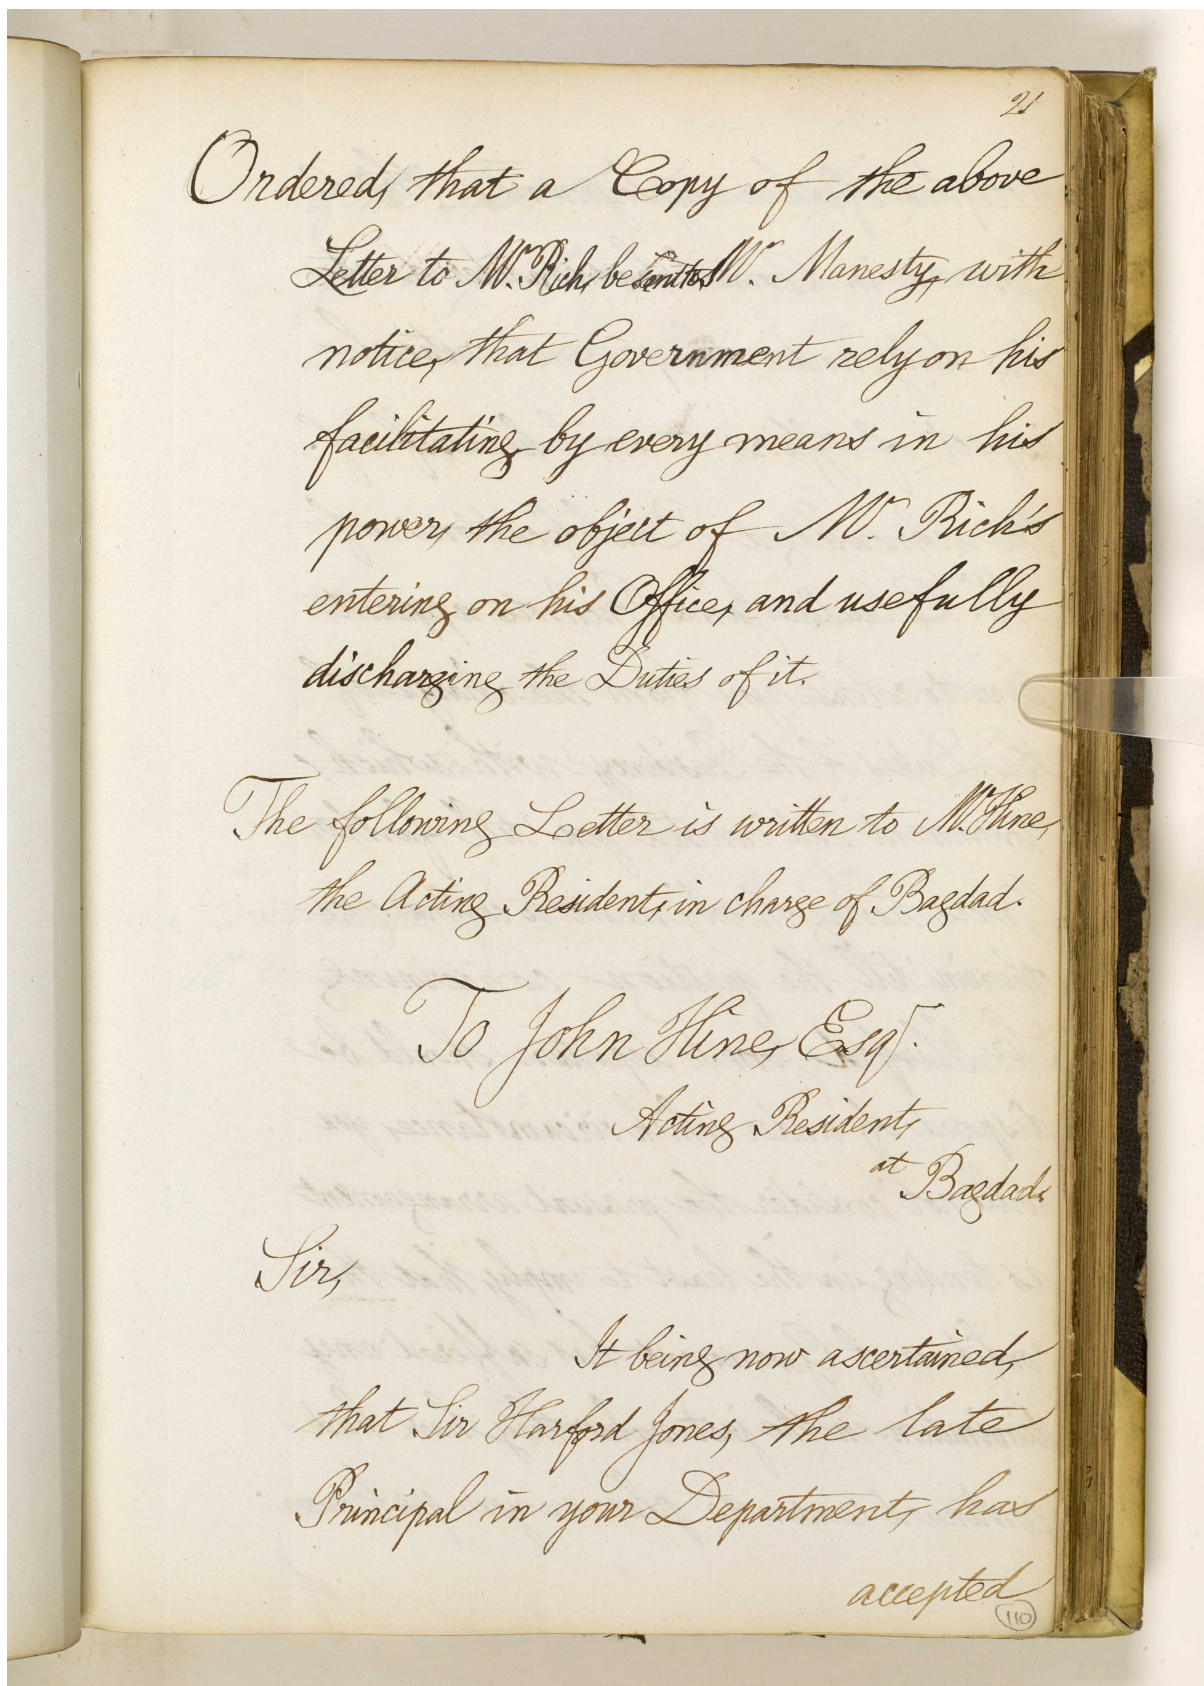 21
Ordered, that a Copy of the above
Letter to Mr. Rich, be sent to Mr. Manesty, with
notice, that Government rely on his
facilitating by every means in his
power, the object of Mr. Rich's
entering on his Office, and usefully
discharging the Duties of it.
The following Letter is written to Mr. Hine,
the Acting Resident, in charge of Bagdad.
To John Hine, Esqr.
Acting Resident,
at Bagdad.
Sir,
It being now ascertained,
that Sir Harford Jones, the late
Principal in your Department, has
accepted
110